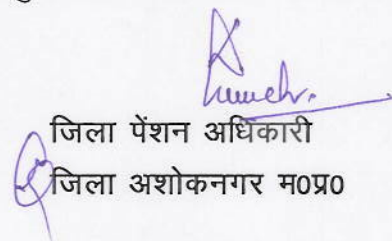 जिला पेंशन अधिकारी
जिला अशोकनगर म0प्र0